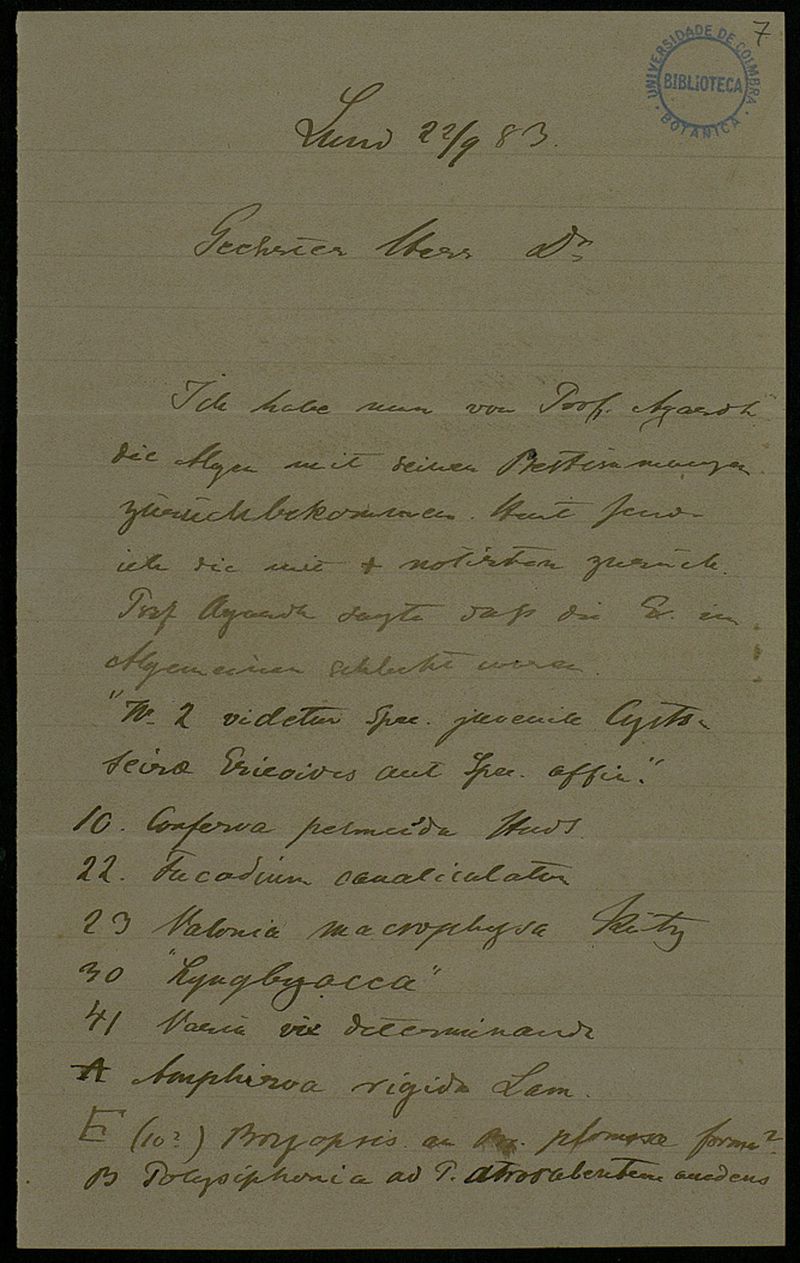 7
UNIVERSIDADE DE COIMBRA
BIBLIOTECA
BOTANICA
Lund 22/9 83.
Geehrter Herr Dr
Ich habe nun von Prof. Agardh
die Algen mit seinen Bestimmungen
zurückbekommen. Heut send
ich die mit + notirten zurück.
Prof Agardh sagte daß die Ex. im
Algemeinen schlecht waren.
"No 2 videtur spec. juvenile Cysto-
seiræ Ericoides aut spec. affin."
10. Conferva Huds.
22. Fucodium canaliculatum
23 Valonia macrophysa Kütz
30 "Lyngbyacea"
41 Varia vix determinanda
A Amphiroa rigida Lam.
E (10?) Bryopsis an Br. plumosæ forma?
B Polysiphonia ad P. atrorubentem accedens